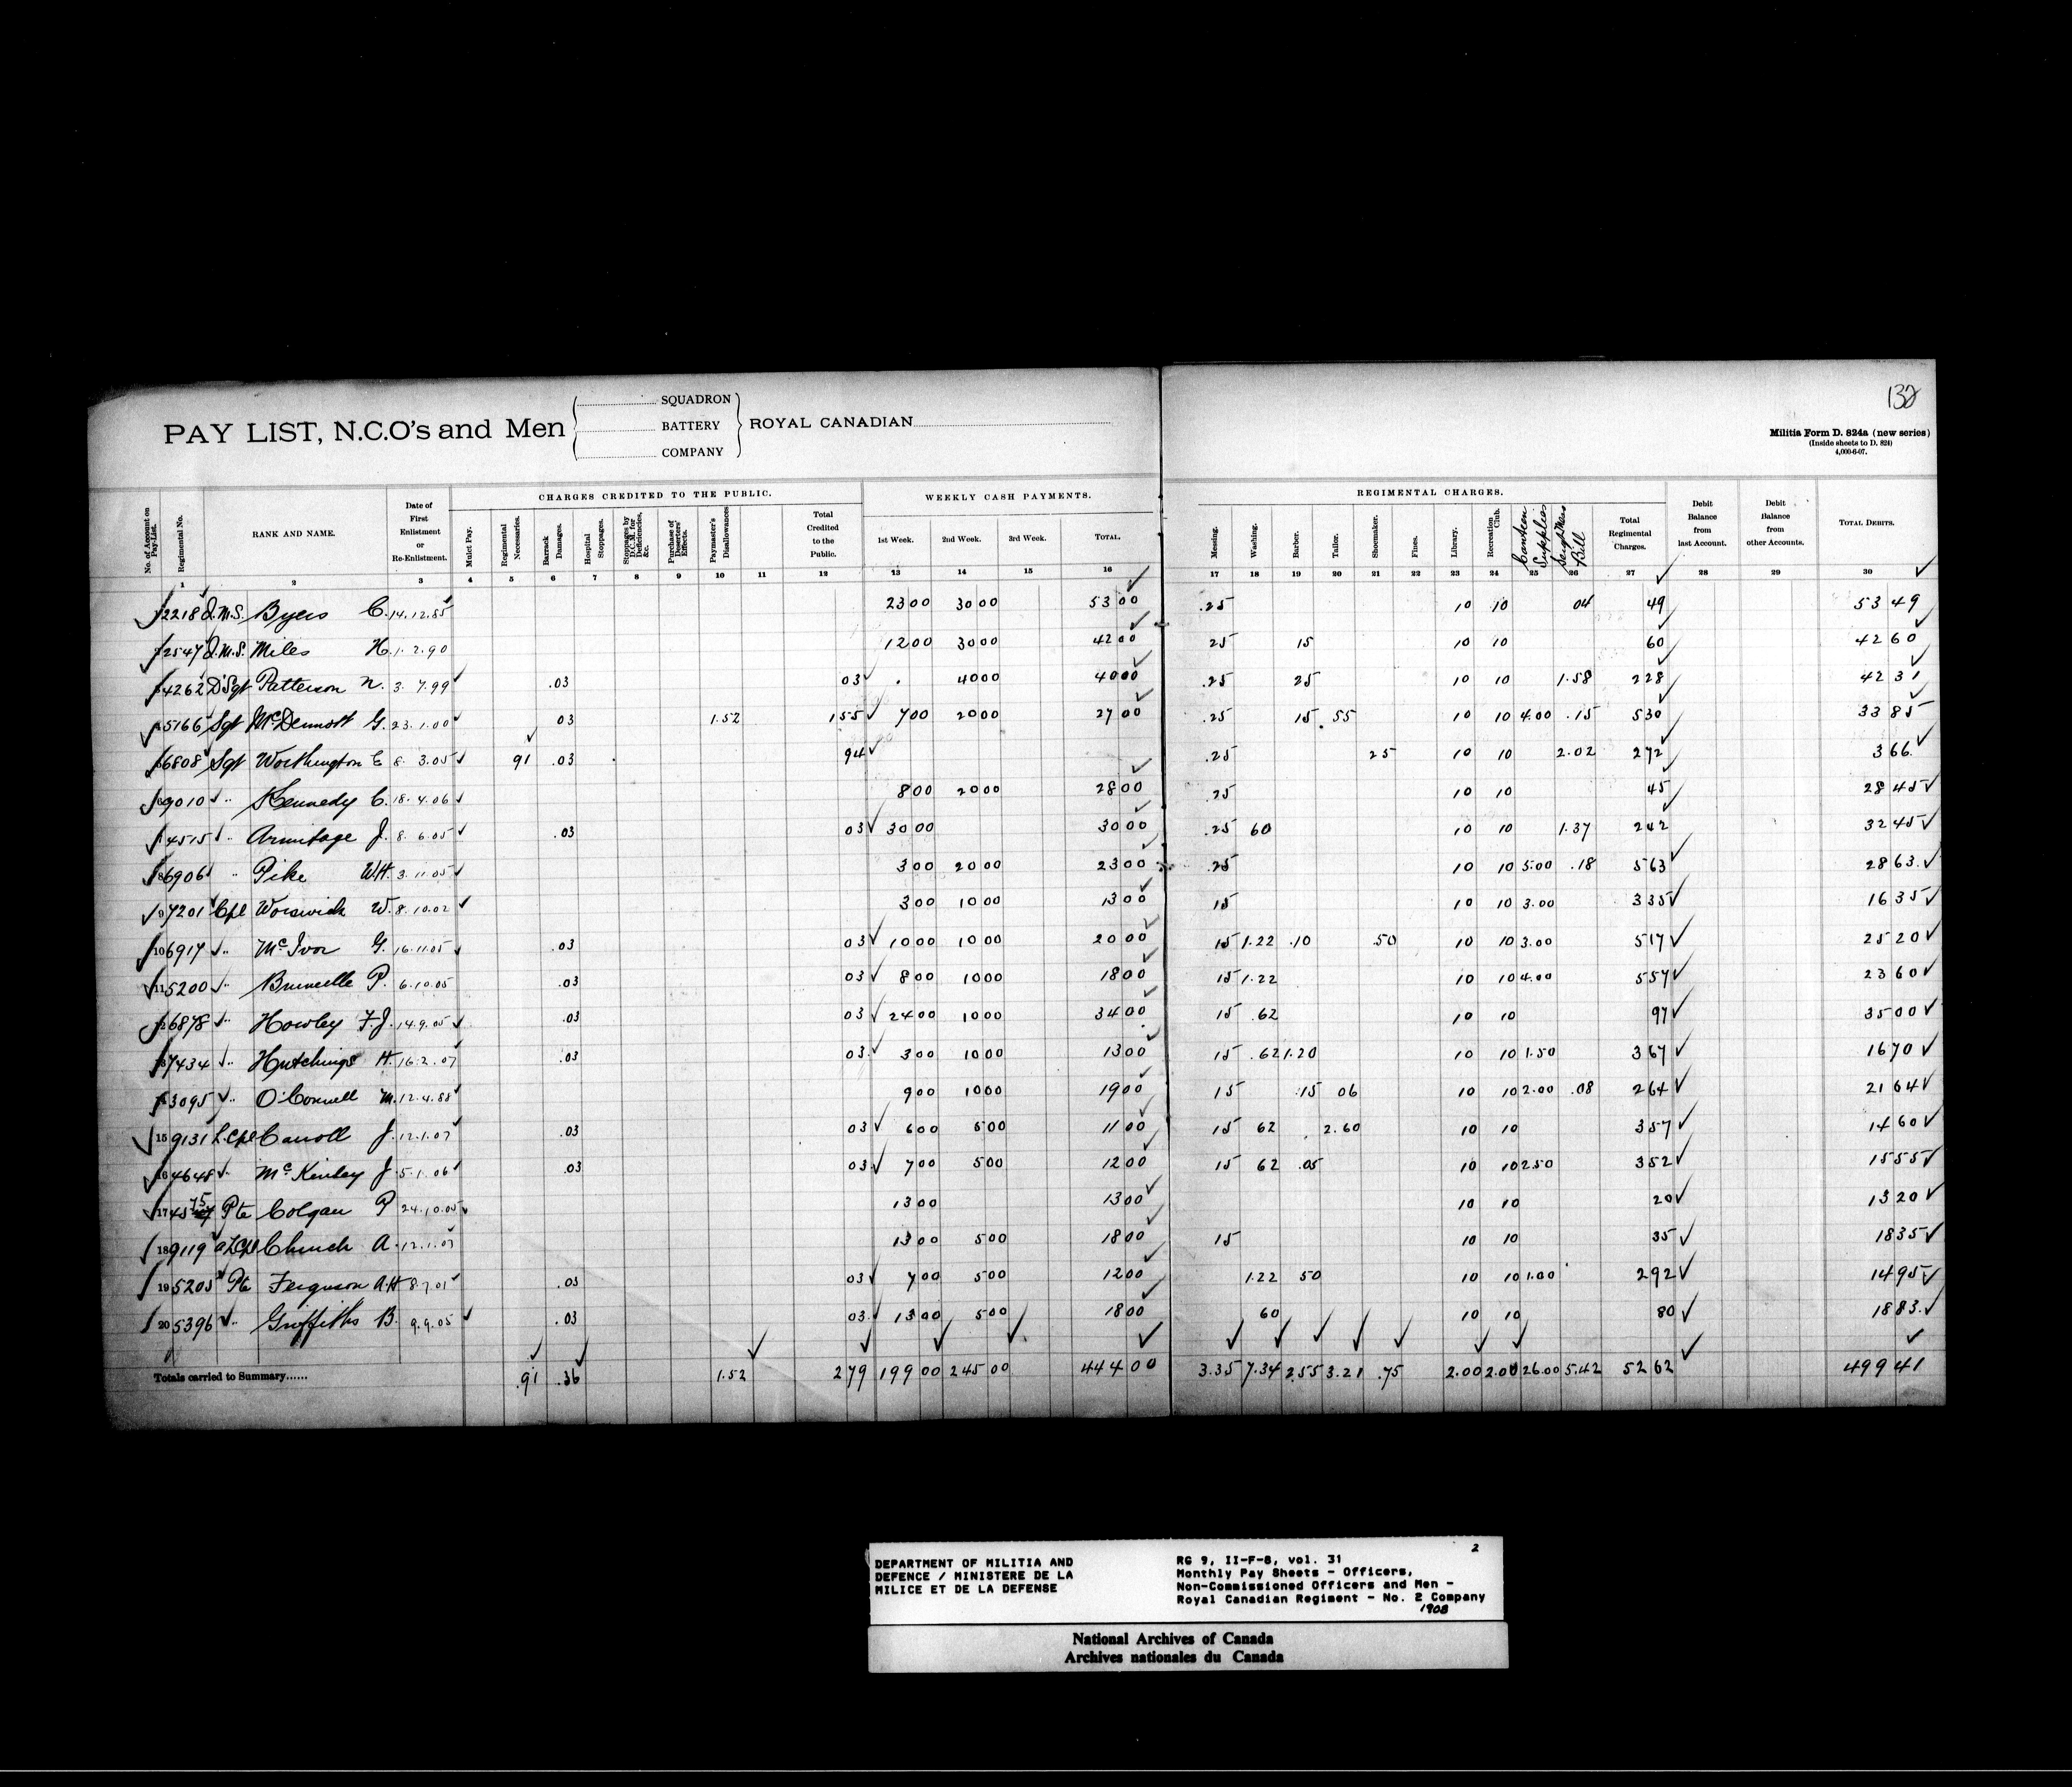 132
PAY LIST, N.C.O's and Men
SQUADRON
BATTERY
COMPANY
ROYAL CANADIAN
Militia Form D. 824a (new series)
(Inside sheets to D. 824)
4,000-6-07.
CHARGES CREDITED TO THE PUBLIC. WEEKLY CASH PAYMENTS. REGIMENTAL CHARGES.
No. of Account on Pay-List. Regimental No. RANK AND NAME. Date of First Enlistment or Re-Enlistment. Mulct Pay. Regimental Necessaries. Barrack Damages. Hospital Stoppages. Stoppages by D.C.M. for Deficiencies, &c. Purchase of Deserters' Effects. Paymaster's Disallowances Total Credited to the Public. 1st Week. 2nd Week. 3rd Week. TOTAL. Messing. Washing. Barber. Tailor. Shoemaker. Fines. Library. Recreation Club. Canteen Supplies Sergt Mess Bill Total Regimental Charges. Debit Balance from last Account. Debit Balance from other Accounts. TOTAL DEBITS.
1 2 3 4 5 6 7 8 9 10 11 12 13 14 15 16 17 18 19 20 21 22 23 24 25 26 27 28 29 30
2218 Q.M.S. Byers C. 14.12.85 2300 3000 5300 .25 10 10 04 49 5349
2547 Q.M.S. Miles H. 1.2.90 1200 3000 4200 25 15 10 10 60 4260
4262 Sgt Patterson N. 3.7.99 .03 03 4000 4000 .25 25 10 10 1.58 228 4231
5166 Sgt McDermott G. 23.1.00 03 1.52 155 700 2000 2700 .25 15 55 10 10 4.00 .15 530 3385
6808 Sgt Worthington E 8.3.05 91 .03 94 .25 25 10 10 2.02 272 366
9010 " Kennedy C. 18.4.06 800 2000 2800 .25 10 10 45 2845
4515 " Armitage J. 8.6.05 .03 03 3000 3000 .25 60 10 10 1.37 242 3245
8 6906 " Pike W.H. 3.11.05 300 2000 2300 .25 10 10 5.00 .18 563 2863
9 7201 Cpl Worswick W. 8.10.02 300 1000 1300 15 10 10 3.00 335 1635
10 6917 " McIvor G. 16.11.05 .03 03 1000 1000 2000 15 1.22 .10 .50 10 10 3.00 517 2520
11 5200 " Brunelle P. 6.10.05 .03 03 800 1000 1800 15 1.22 10 10 4.00 557 2360
12 6878 " Howley F.J. 14.9.05 .03 03 2400 1000 3400 15 .62 10 10 97 3500
7434 " Hutchings H. 16.2.07 .03 03 300 1000 1300 15 .62 1.20 10 10 1.50 367 1670
3095 " O'Connell M. 12.4.88 900 1000 1900 15 15 06 10 10 2.00 .08 264 2164
15 9131 L.Cpl Carroll J. 12.1.07 .03 03 600 500 1100 15 62 2.60 10 10 357 1460
16 4648 " McKinley J. 5.1.06 .03 03 700 500 1200 15 62 .05 10 10 2.50 352 1555
17 4575 Pte Colgan P 24.10.05 1300 1300 10 10 20 1320
18 9119 a/L.Cpl Church A. 12.1.07 1300 500 1800 15 10 10 35 1835
19 5205 Pte Ferguson A.H 8.7.01 .03 03 700 500 1200 1.22 50 10 10 1.00 292 1495
20 5396 " Griffiths B. 9.9.05 .03 03 1300 500 1800 60 10 10 80 1883
Totals carried to Summary...... .91 .36 1.52 279 19900 24500 44400 3.35 7.34 2.55 3.21 .75 2.00 2.00 26.00 5.42 5262 49941
DEPARTMENT OF MILITIA AND
DEFENCE / MINISTERE DE LA
MILICE ET DE LA DEFENSE
2
RG 9, II-F-8, vol. 31
Monthly Pay Sheets - Officers,
Non-Commissioned Officers and Men -
Royal Canadian Regiment - No. 2 Company
1908
National Archives of Canada
Archives nationales du Canada